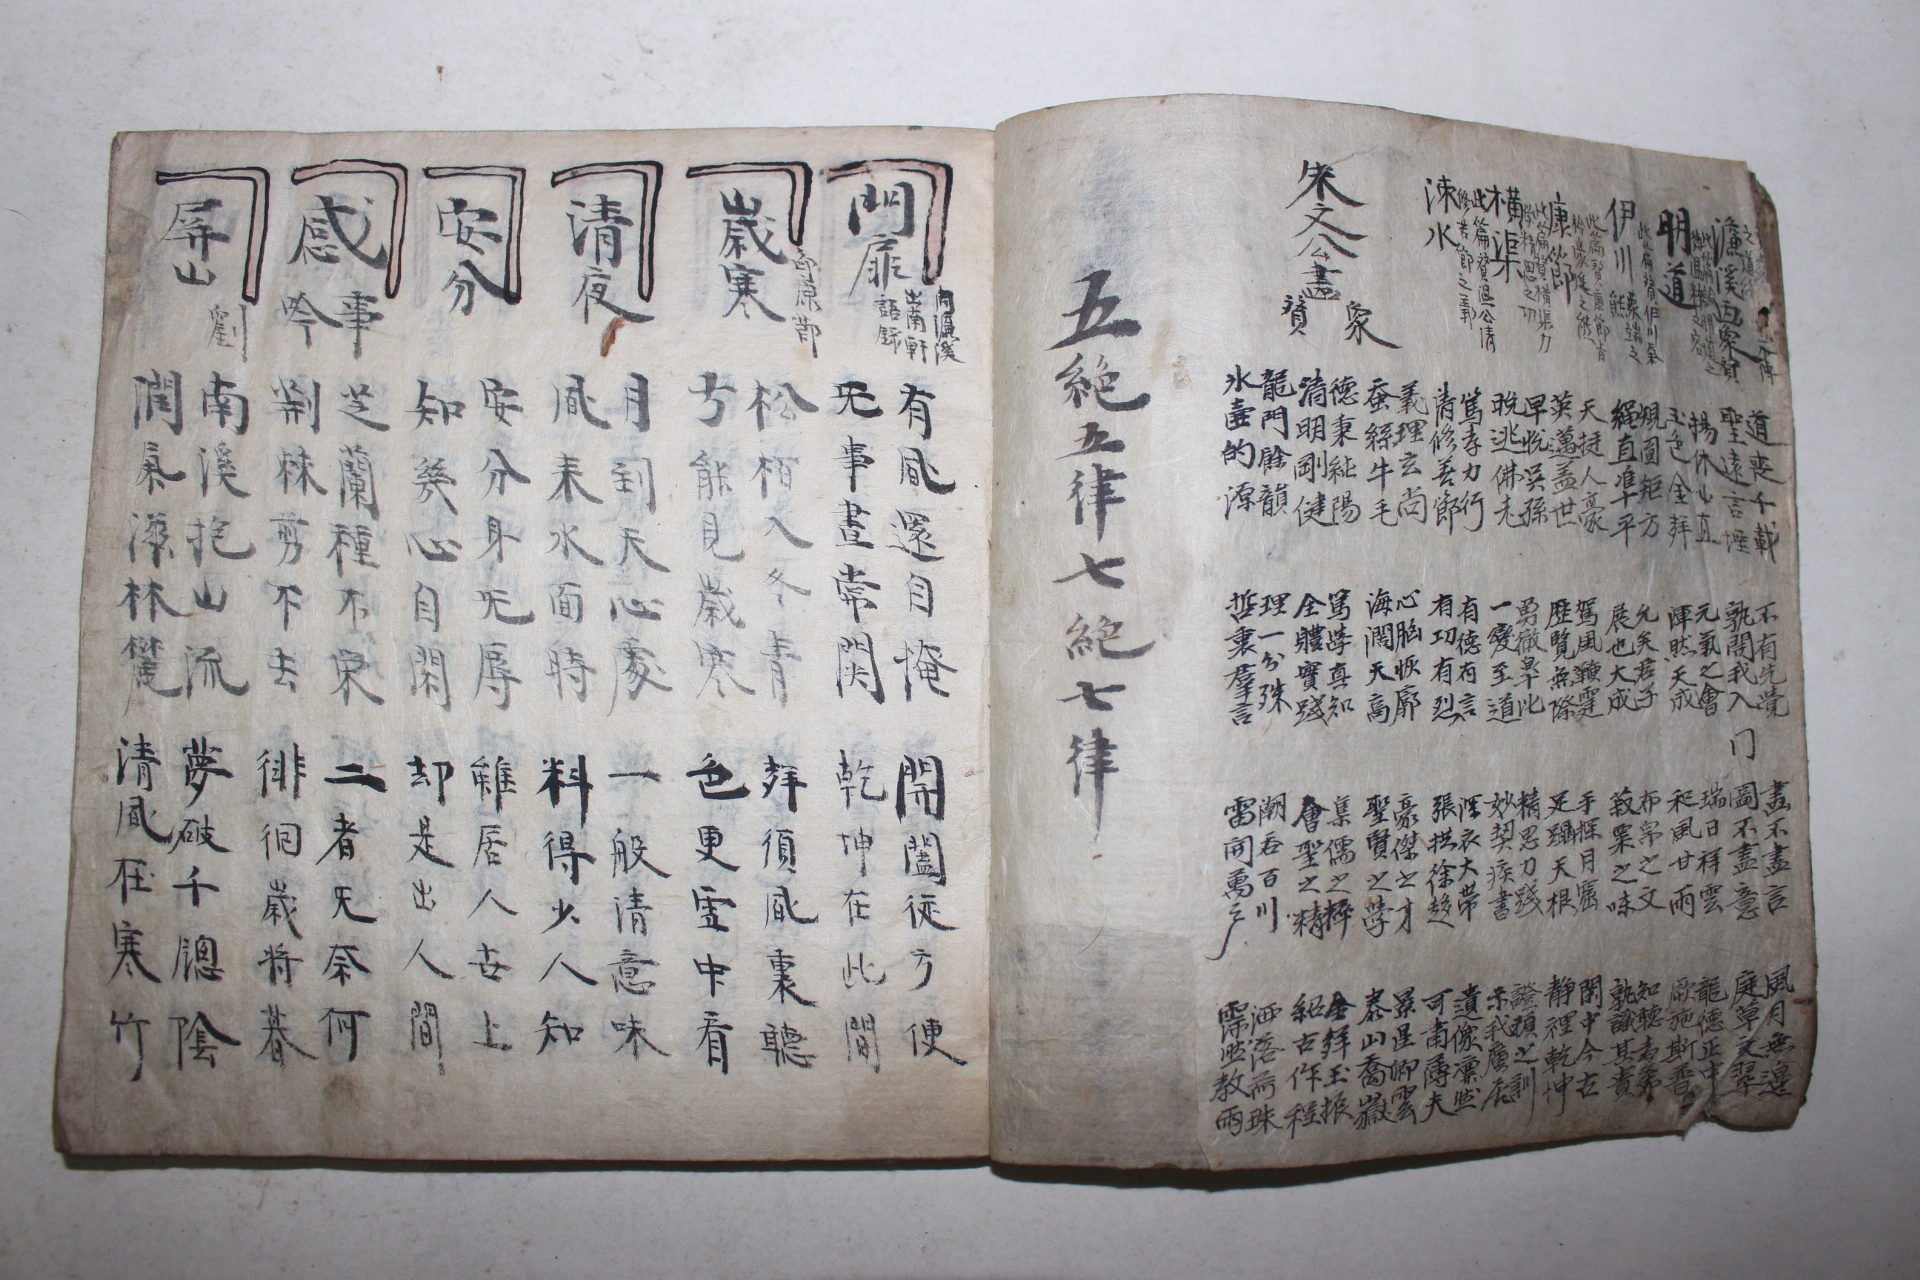 濂溪画象贊
道喪千載 不有先覺 書不盡言 風月無邊
聖遠言堙 孰開我入 圖不盡意 庭草交翠
門
明道
揚休山立 元氣之會 瑞日祥雲 龍德正中
玉色金聲 渾然天成 和風甘雨 厥施斯普
伊川
規圓矩方 允矣君子 布帛之文 知德者希
繩直準平 展也大成 菽粟之味 孰識其貴
康節
天挺人豪 駕風鞭霆 手探月窟 閑中今古
英邁蓋世 歷覽無際 足躡天根 靜裡乾坤
橫渠
早悅吳孫 勇徹皐比 精思力踐 證頑之訓
晩逃佛老 一變至道 妙契疾書 示我廣居
涑水
篤孝力行 有德有言 深衣大帶 遺像凛然
清修善節 有功有烈 張拱徐趍 可肅薄夫
朱文公畵象贊
義理玄尚 心胸恢廓 豪傑之才 景星卿雲
蚕絲牛毛 海濶天高 聖賢之學 泰山喬嶽
德秉純陽 篤學真知 集儒之粹 金聲玉振
清明剛健 全體實踐 會聖之精 紹古作程
龍門餘韻 理一分殊 潮呑百川 洒落而珠
氷壺的源 哲秉羣言 雷開萬戶 霈然敎雨
五絶五律七絶七律
門扉
有風還自掩 開闔從方便
旡事晝常関 乾坤在此間
歲寒
松栢入冬青 聲須風裏聽
方能見歲寒 色更雪中看
清夜
月到天心處 一般清意味
風来水面時 料得少人知
安分
安分身旡辱 雖居人世上
知幾心自閑 却是出人間
感事吟
芝蘭種不荣 二者旡奈何
荆棘剪不去 徘徊歲將暮
屏山
劉
南溪抱山流 夢破千䆫陰
潤氣滋林麓 清風在寒竹